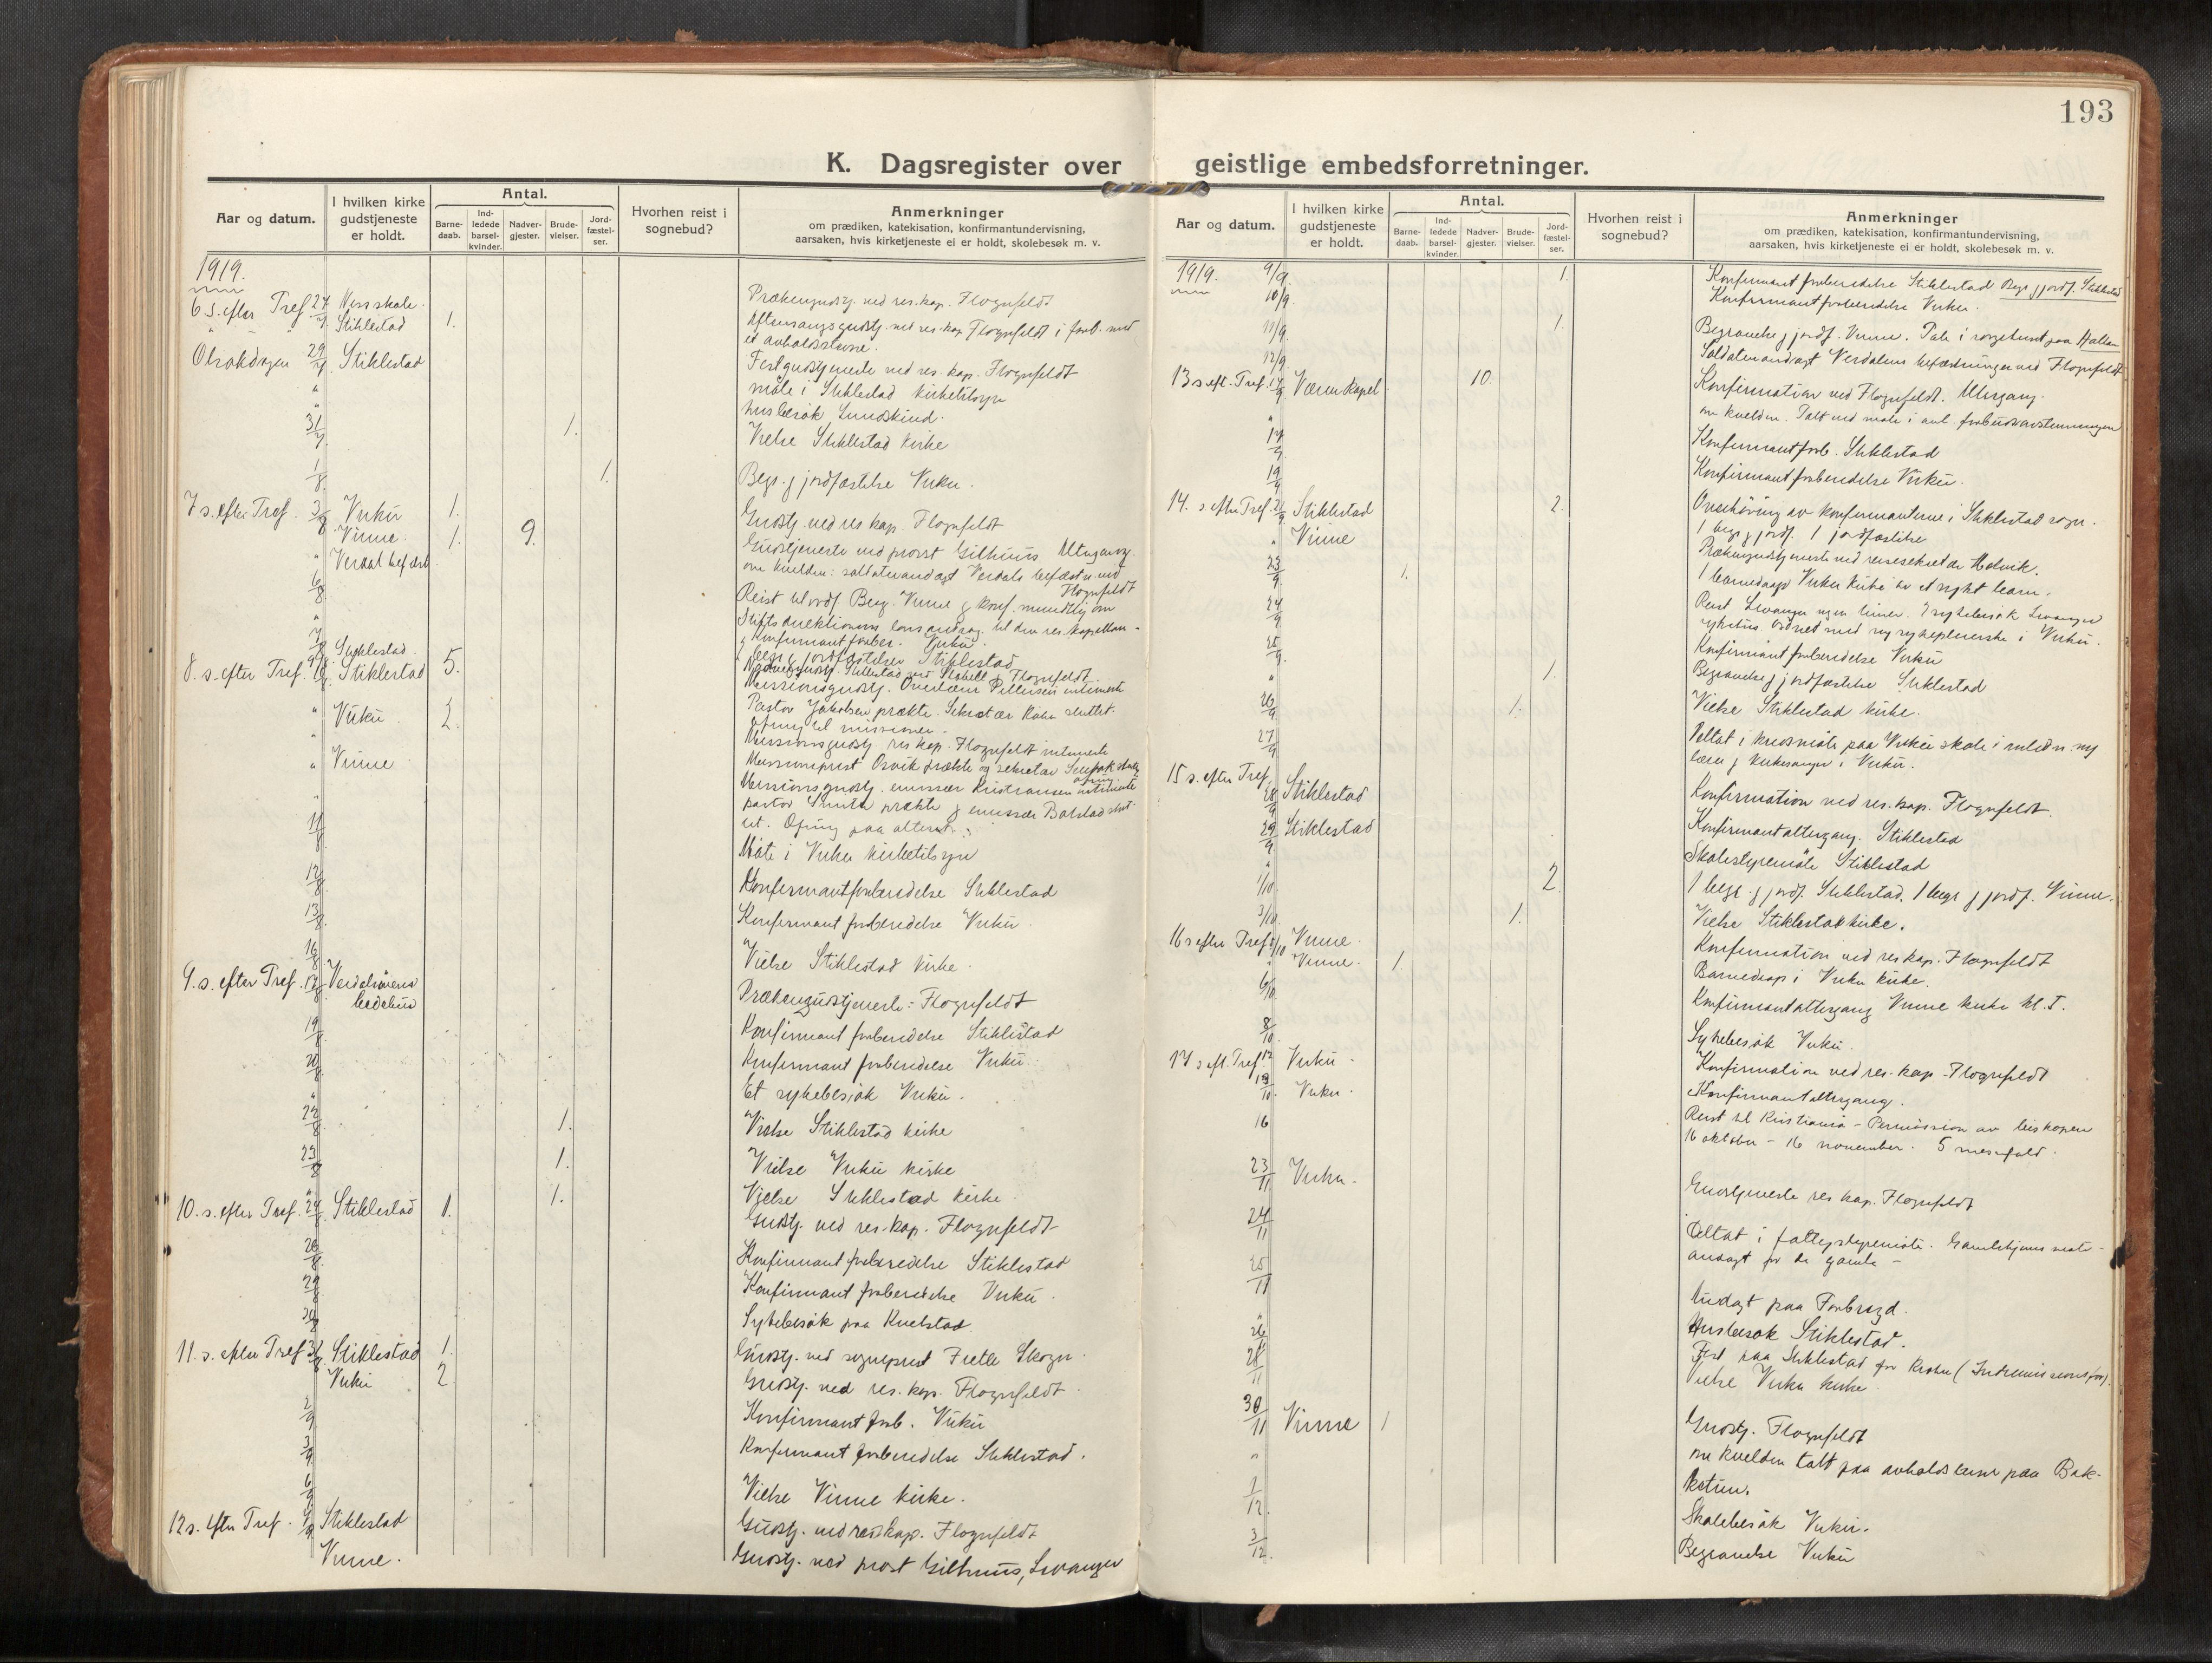 193
K. Dagsregister over geistlige embedsforretninger.
Aar og datum.
I hvilken kirke gudstjeneste er holdt.
Antal.
Barne-daab.
Ind-ledede barsel-kvinder.
Nadver-gjester.
Brude-vielser.
Jord-fæstel-ser.
Hvorhen reist i sognebud?
Anmerkninger
om prædiken, katekisation, konfirmantundervisning,
aarsaken, hvis kirketjeneste ei er holdt, skolebesøk m. v.
1919.
6 s. efter Tref. 27/7 Prækengudstj. ved res. kap. Flognfeldt
Stiklestad 1. Aftensangsgudstj. ved res. kap. Flognfeldt i forb. med
et avholdsstevne.
Olsokdagen 29/7 Stiklestad Festgudstjeneste ved res. kap. Flognfeldt
" møte i Stiklestad kirketilsyn
" husbesøk
31/7 1. Vielse Stiklestad kirke
1/8 1. Begr. & jordfæstelse Vuku.
7 s. efter Tref. 3/8 Vuku 1. Gudstj. ved res kap. Flognfeldt
Vinne 1. 9. Gudstjeneste ved prost Gilhuus Altergang.
" Verdal befæst. om kvelden: soldaterandagt Verdals befæstn. ved
Flognfeldt
6/8 Reist til ordf. Berg. Vinne & konf. mundtlig om
Stiftsdirektionens til den res. kapellan -
& Konfirmantforber. Vuku.
7/8 Stiklestad. jordfæstelser Stiklestad
8. s. efter Tref. Stiklestad 5. Missionsgudstj. Pettersen intimerte
Pastor Jakobsen prækte. Sekretær sluttet.
ofring til missionen.
" Vuku 2. Missionsgudstj. res kap. Flognfeldt intimerte
Missionsprest Osvik prækte og sekretær
" Vinne Missionsgudstj. emissær Kristiansen intimerte
pastor prækte & emissær slut-
tet. Ofring paa alteret.
11/8 Møte i Vuku kirketilsyn
12/8 Konfirmantforberedelse Stiklestad
13/8 Konfirmant forberedelse Vuku.
16/8 Vielse Stiklestad kirke
9. s. efter Tref. 17/8 Verdalsørens bedehus Prækengudstjeneste: Flognfeldt
19/8 Konfirmant forberedelse Stiklestad
20/8 Konfirmant forberedelse Vuku.
" Et sykebesøk Vuku.
22/8 1. Vielse Stiklestad kirke
23/8 1. Vielse Vuku kirke
" 1. Vielse Stiklestad kirke.
10. s. efter Tref. 24/8 Stiklestad 1. Gudstj. ved res. kap. Flognfeldt
28/8 Konfirmant forberedelse Stiklestad
29/8 Konfirmant forberedelse Vuku.
30/8 Sykebesøk paa Kvelstad
11. s. efter Tref. 31/8 Stiklestad 1. Gudstj. ved sogneprest Skogn.
Vuku 2. Gudstj. ved res. kap. Flognfeldt.
2/9 Konfirmant forb. Vuku
3/9 Konfirmant forberedelse Stiklestad.
6/9 Vielse Vinne kirke.
12 s. efter Tref. Stiklestad Gudstj. ved res kap. Flognfeldt
Vinne. Gudstj. ved prost Gilhuus, Levanger
Aar og datum.
I hvilken kirke gudstjeneste er holdt.
Antal.
Barne-daab.
Ind-ledede barsel-kvinder.
Nadver-gjester.
Brude-vielser.
Jord-fæstel-ser.
Hvorhen reist i sognebud?
Anmerkninger
om prædiken, katekisation, konfirmantundervisning,
aarsaken, hvis kirketjeneste ei er holdt, skolebesøk m. v.
1919. 9/9 1. Konfirmant forberedelse Stiklestad Begr & jordf. Stiklestad
10/9. Konfirmant forberedelse Vuku.
11/9. 1. Begravelse & jordf. Vinne. Tale i sørgehuset paa Hallan
12/9 Soldaterandagt Verdalens befæstninger ved Flognfeldt
13 s. eft. Tref. Væren Kapel 10. Konfirmation ved Flognfeldt. Altergang.
" om kvelden. Talt ved møte i anl. forbudsavstemningen
17/9 Konfirmantforb. Stiklestad
19/9 Konfirmant forberedelse Vuku.
14. s. efter Tref. 21/9 Stiklestad 2. Overhøring av konfirmanterne i Stiklestad sogn.
1 begr & jordf. 1 jordfæstelse
" Vinne Prækengudstjeneste ved reisesekretær Holvik.
23/9 1. 1 barnedaap Vuku kirke av et sykt barn.
24/9 Reist Levanger Sykebesøk Levanger
sykehus. Ordnet med ny sykepleierske i Vuku.
25/9 Konfirmant forberedelse Vuku
" 1. Begravelse & jordfæstelse Stiklestad
26/9 1. Vielse Stiklestad kirke.
27/9 Deltat i kredsmøte paa Vuku skole i anledn. ny
lærer & kirkesanger i Vuku.
15 s. efter Tref. 28/9 Stiklestad Konfirmation ved res. kap. Flognfeldt.
29/9 Stiklestad Konfirmantaltergang. Stiklestad
" Skolestyremøte Stiklestad
1/10 2. 1 begr. & jordf. Stiklestad. 1 begr & jordf. Vinne.
3/10 1. Vielse Stiklestad kirke.
16 s efter Tref. 5/10 Vinne. Konfirmation ved res kap. Flognfeldt
" Vinne. 1. Barnedaap i Vuku kirke.
6/10 Konfirmantaltergang Vinne kirke
8/10 Sykebesøk Vuku.
17 s. eft. Tref. 12 Vuku. Konfirmation ved res. kap. Flognfeldt
13/10. Vuku. Konfirmantaltergang.
16 Reist til Kristiania - Permission av biskopen
16 oktober - 16 november. 5 messefald.
23/11 Vuku. Gudstjeneste res kap. Flognfeldt
24/11 Deltat i fattigstyremøte. Gamlehjems
andagt for de gamle -
25/11 Andagt paa Forbregd.
" Husbesøk Stiklestad.
26/11 Fest paa Stiklestad for (Indremissions
28/11 Vielse Vuku kirke.
30/11 Vinne 1 Gudstj. Flognfeldt
" om kvelden talt paa avholds paa Bak-
ketun.
1/12. Skolebesøk Vuku.
3/12. Begravelse Vuku